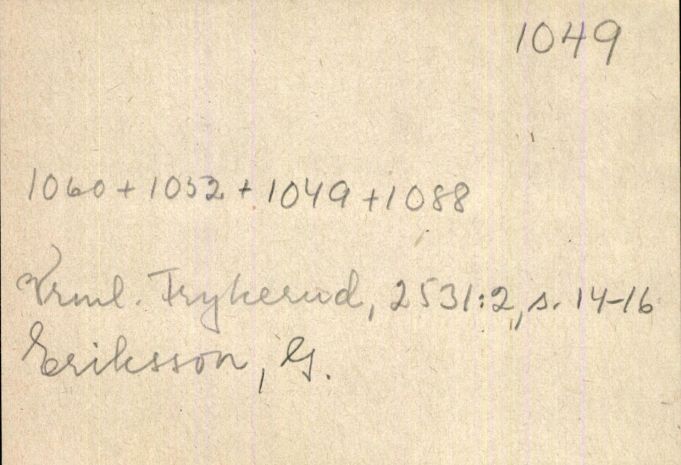 1049
1060 + 1052 + 1049 + 1088
Vrml. Frykerud, 2531:2, s. 14-16
Eriksson, G.